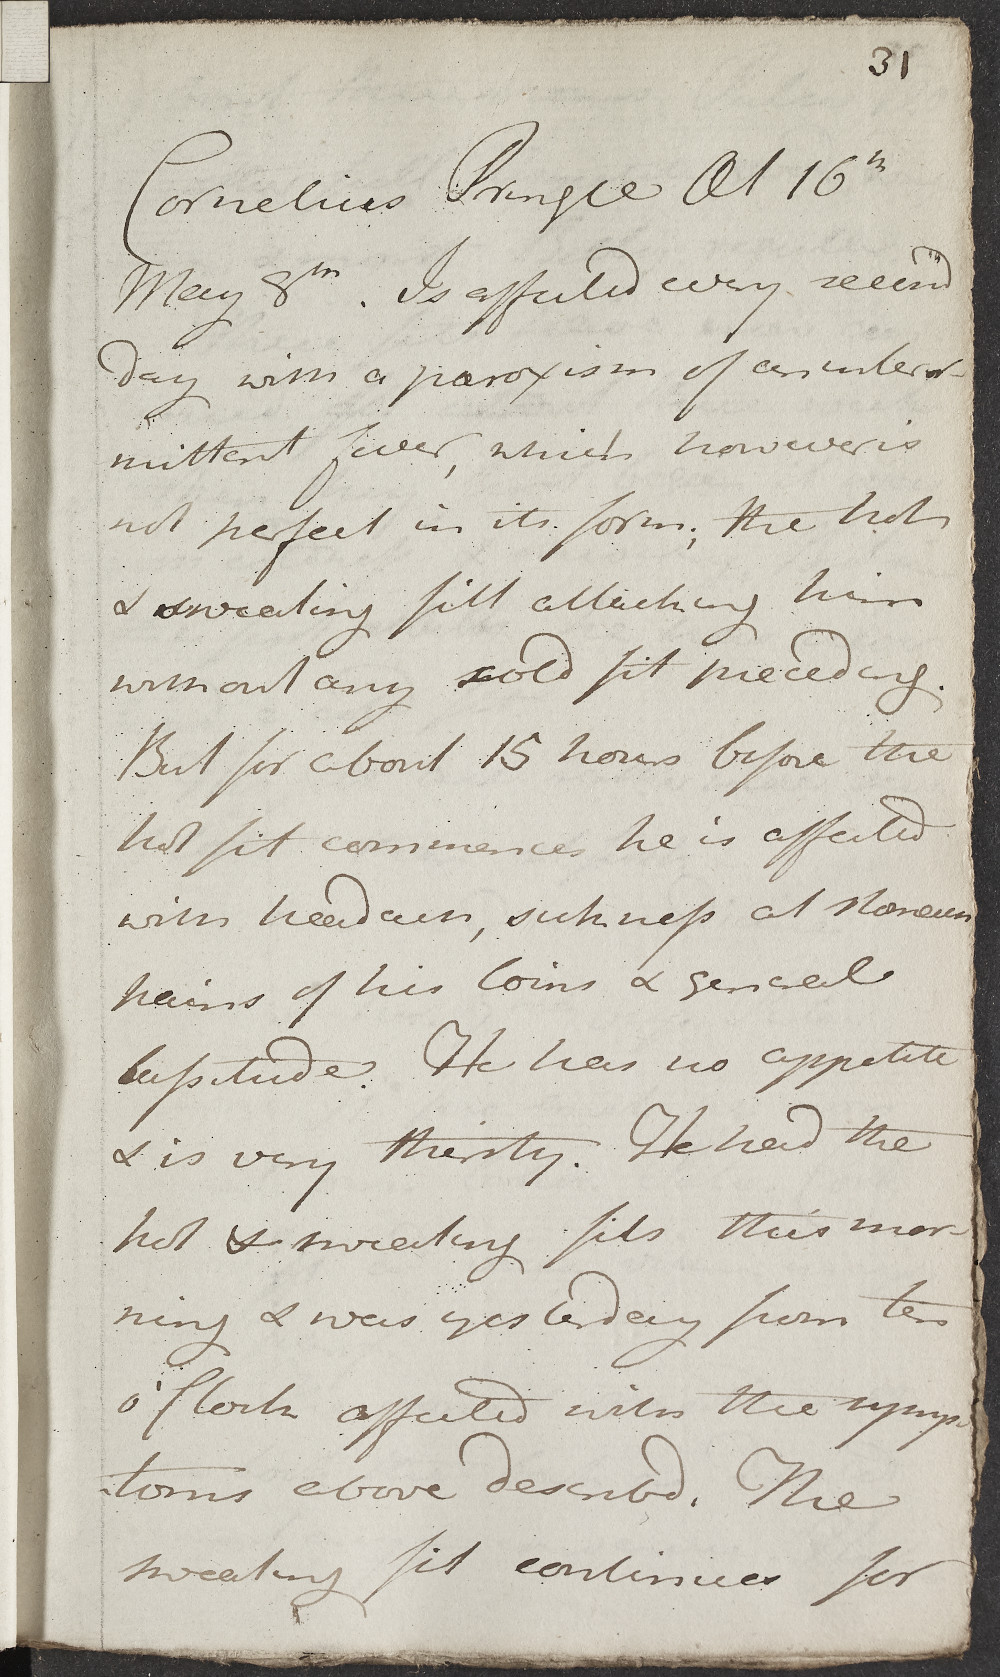 31
Cornelius Pringle Æt 16th
May 8th. Is affected every second
day with a paroxism of an inter-
mittent fever, which however is
not perfect in its form; the hot
& sweating fitt attacking him
without any cold fit preceding.
But for about 15 hours before the
hot fit commences he is affected
with headach, sickness at stomach
pains of his loins & general
lassitude. He has no appetite
& is very thirsty. He had the
hot & sweating fits this mor-
ning & was yesterday from ten
o'Clock affected with the symp-
toms above describd. The
sweating fit continues for